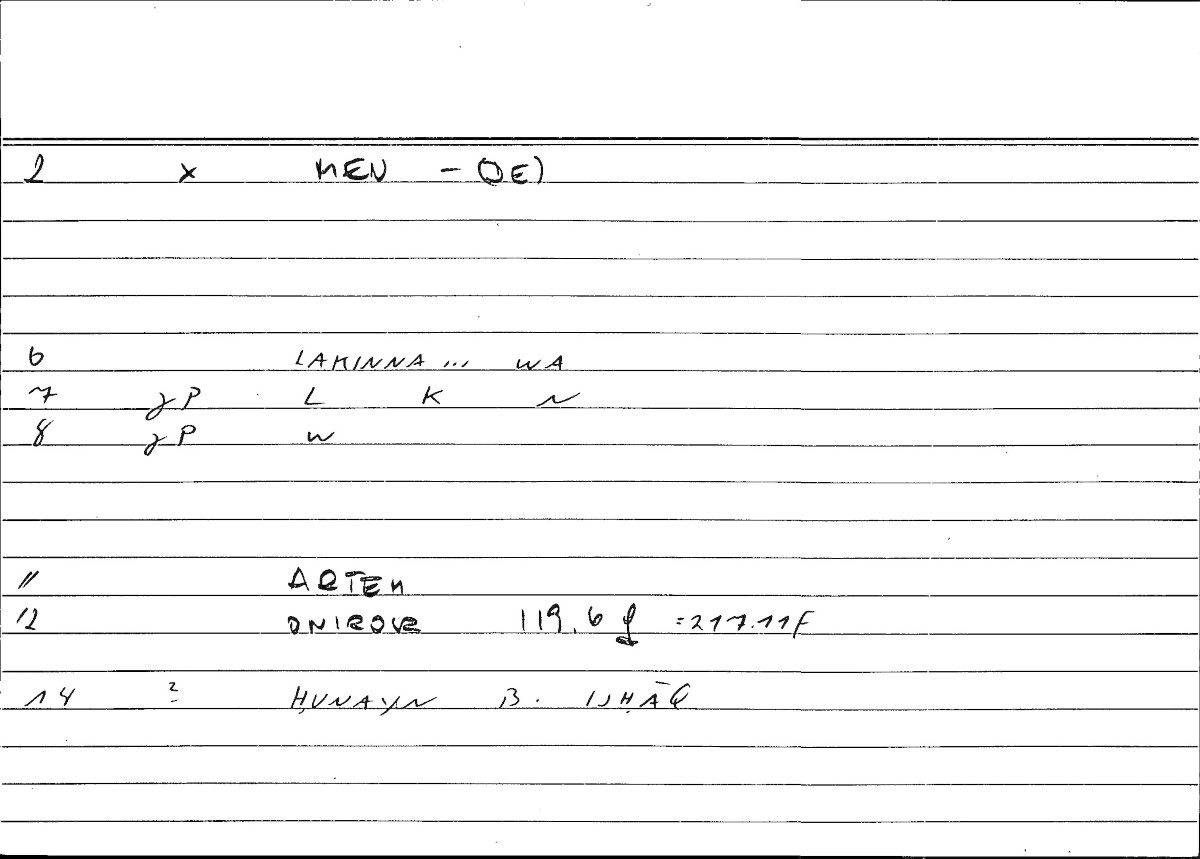 2 x MEN - (DE)
6 LAKINNA ... WA
7 γP L K N
8 γP W
11 ARTEM
12 ONIROCR 119.6 f = 217.11 F
14 ? ḤUNAYN B. ISḤĀQ